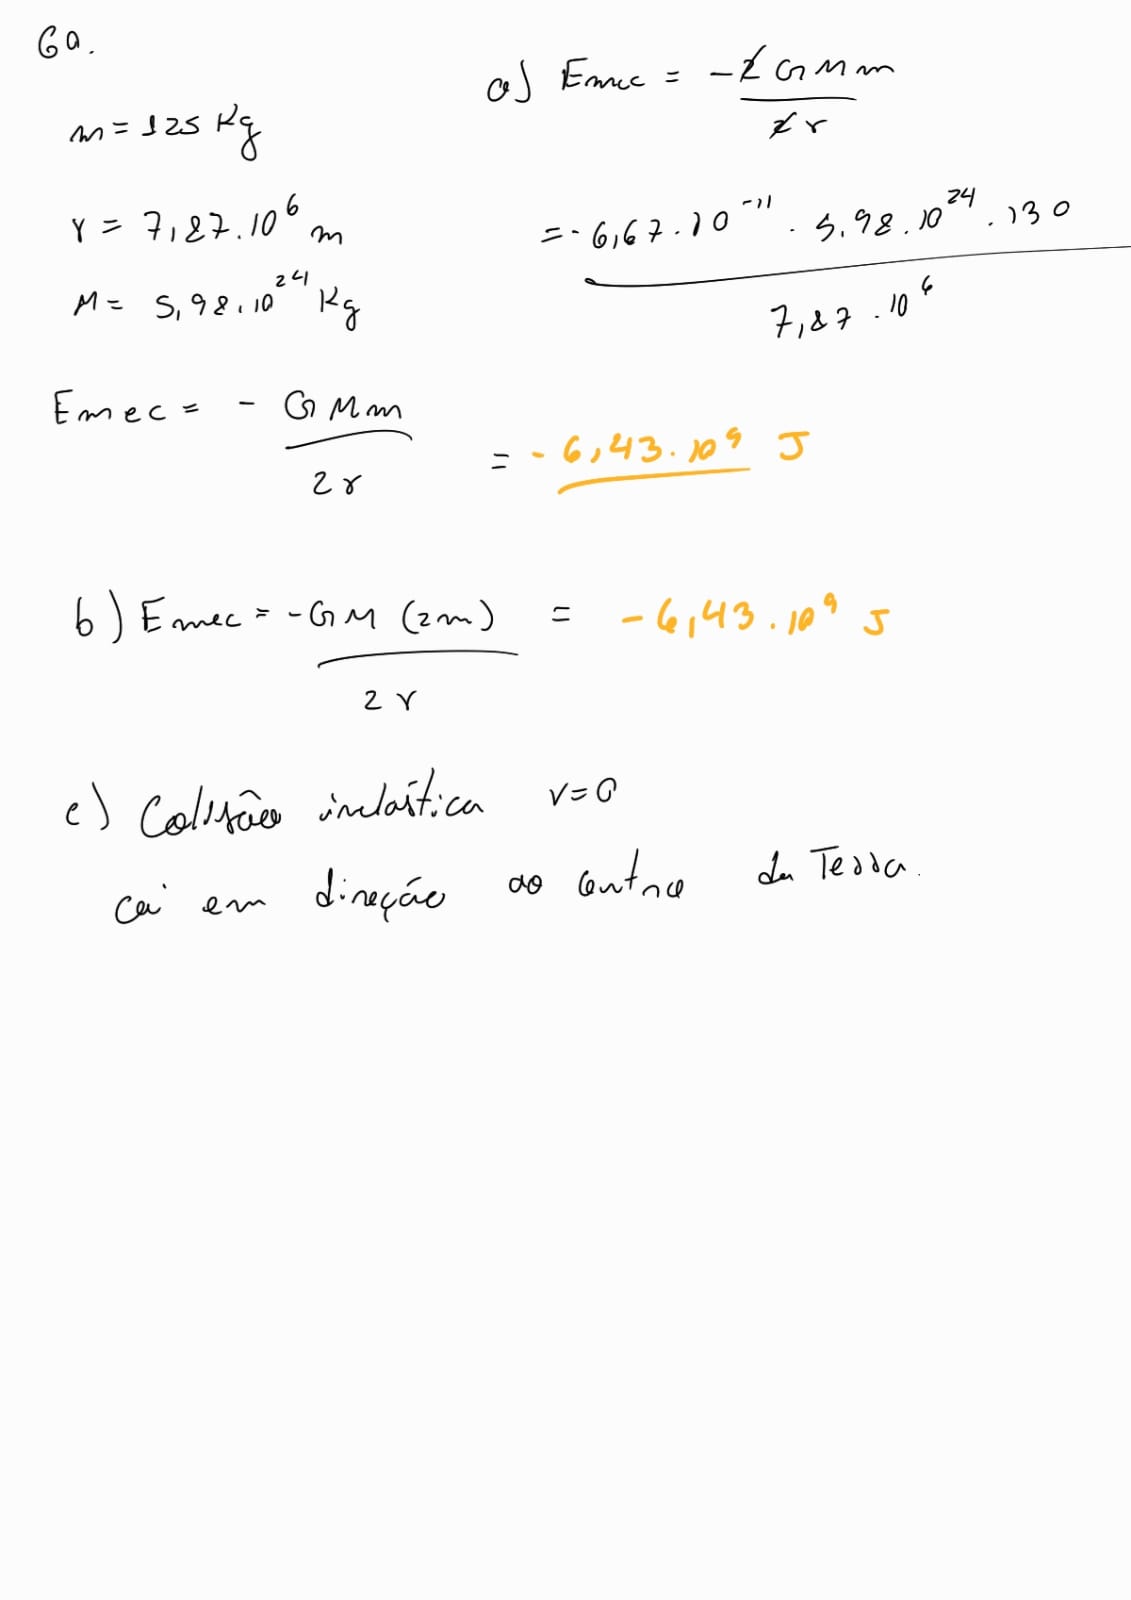 6a.
m = 125 Kg
r = 7,87.10^6 m
M = 5,98.10^24 Kg
Emec = - GMm / 2r
a) Emec = -2GMm / 2r
= - 6,67.10^-11 . 5,98.10^24 . 130 / 7,87.10^6
= - 6,43.10^9 J
b) Emec = -GM(2m) / 2r = - 6,43.10^9 J
c) Colisão inelástica v=0
cai em direção ao centro da Terra.